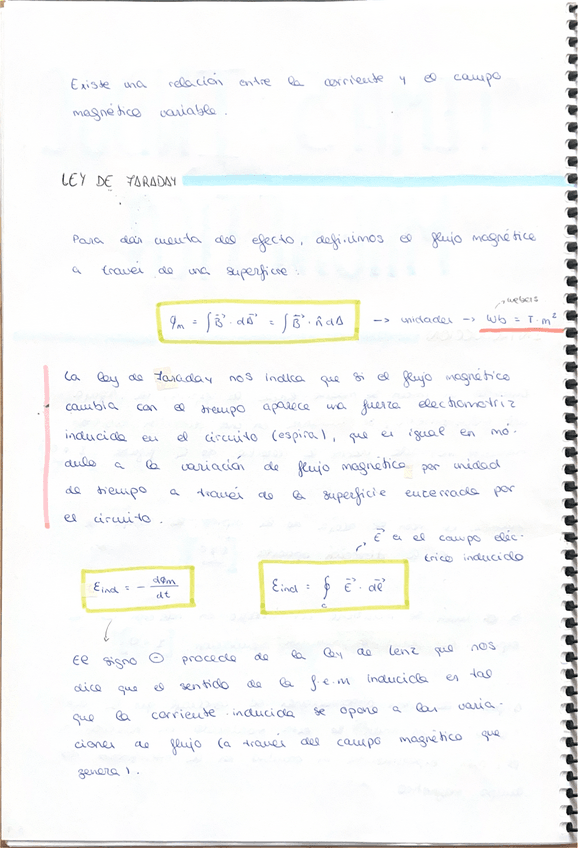 Existe una relación entre la corriente y el campo
magnético variable.
LEY DE FARADAY
Para dar cuenta del efecto, definimos el flujo magnético
a través de una superficie:
φm = ∫ B⃗ · dA⃗ = ∫ B⃗ · n̂ dA → unidades → Wb = T · m²
webers
La ley de Faraday nos indica que si el flujo magnético
cambia con el tiempo aparece una fuerza electromotriz
inducida en el circuito (espira), que es igual en mó-
dulo a la variación de flujo magnético por unidad
de tiempo a través de la superficie encerrada por
el circuito.
E⃗ es el campo eléc-
trico inducido
Eind = - dφm/dt
Eind = ∮c E⃗ · dl⃗
El signo ⊖ procede de la ley de Lenz que nos
dice que el sentido de la f.e.m inducida es tal
que la corriente inducida se opone a las varia-
ciones de flujo (a través del campo magnético que
genera).